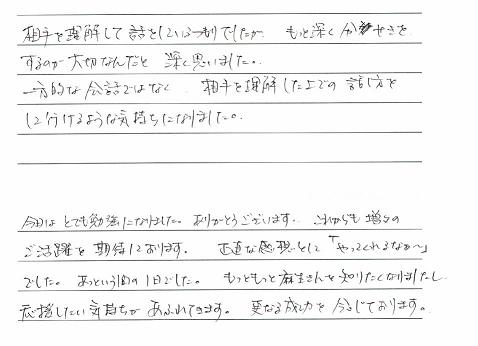 相手を理解して話をしているつもりでしたが、もっと深く分せきを
するのが大切なんだと深く思いました。
一方的な会話ではなく、相手を理解した上での話し方を
し分けるような気持ちになりました。
今日はとても勉強になりました。ありがとうございます。これからも増々の
ご活躍を期待しております。正直な感想として「やってくれるなぁ〜」
でした。あっという間の1日でした。もっともっと麻生さんを知りたくなりましたし
応援したい気持ちがあふれてきます。更なる成功を念じております。